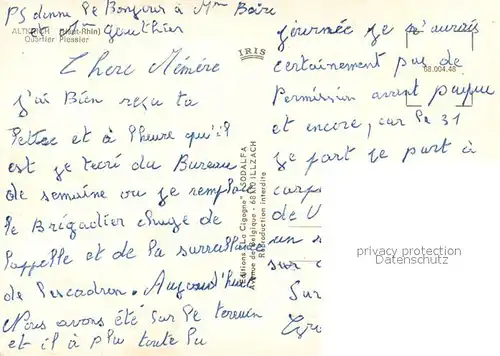 PS donne le Bonjour à Mme Boire
et Mme Gauthier
ALTKIRCH (Haut-Rhin)
Quartier Plessier
Chere Mémère
j'ai Bien reçu ta
lettre et à l'heure qu'il
est je t'ecri du Bureau
de semaine ou je remplace
le Brigadier charge de
l'appelle et de la surveillance
de l'escadron. Aujourd'hui
Nous avons été sur le terrain
et il à plu toute la
IRIS
Editions "La Cigogne" SODALFA
Avenue de Belgique - 68110 ILLZACH
Reproduction interdite
journée je n'aurais
certainement pas de
Permission avant paque
et encore, car le 31
je part je part à
de V
un s
sur c
Sur
68.004.48
privacy protection
Datenschutz